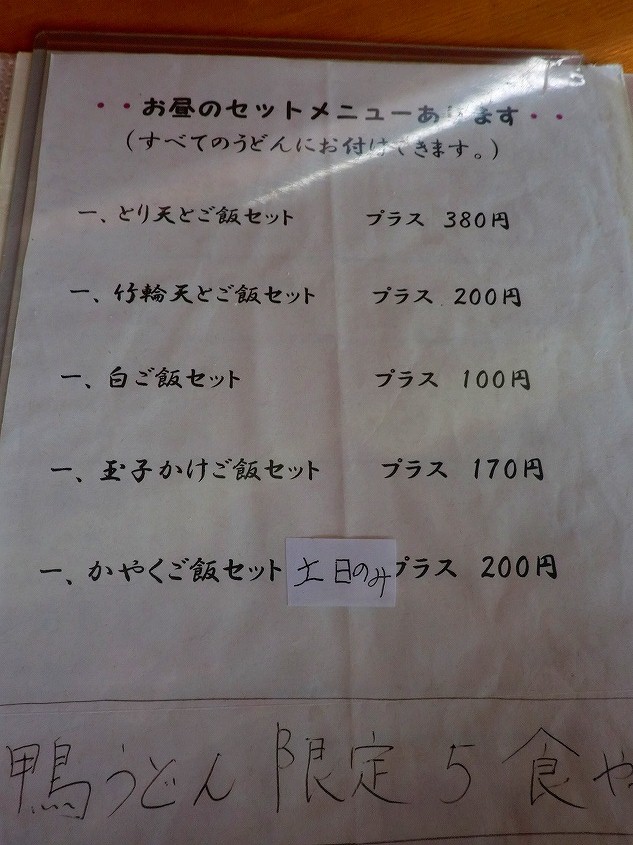 ・・お昼のセットメニューあります・・
(すべてのうどんにお付けできます。)
一、とり天とご飯セット プラス 380円
一、竹輪天とご飯セット プラス 200円
一、白ご飯セット プラス 100円
一、玉子かけご飯セット プラス 170円
一、かやくご飯セット 土日のみ プラス 200円
鴨うどん 限定 5 食や